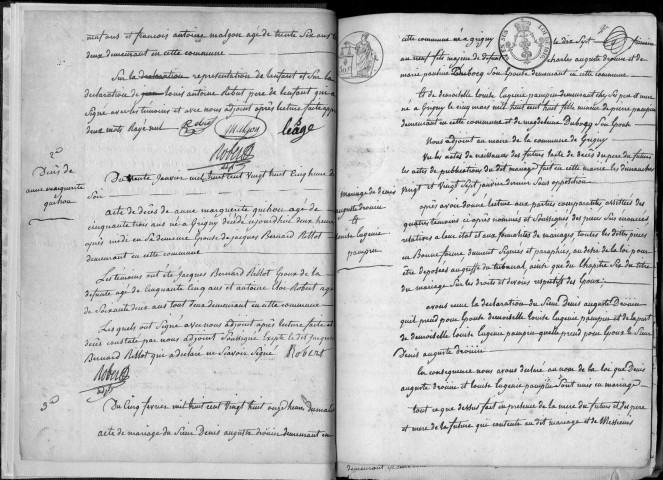 neuf ans et francois antoine malyon agé de trente Six ans tous
deux demeurant en cette commune
Sur la declaration representation de l'enfant et Sur la
declaration de louis antoine Rebut pere de l'enfant qui a
Signé avec les temoins et avec nous adjoint après lecture faite
deux mots Rayé nul
malyon
leage
Robert
2°
Décès de
anne marguerite
guihou
Du trente janvier mil huit cent vingt huit Cinq heure du
Soir
acte de décès de anne marguerite guihou agé de
cinquante trois ans né a Grigny décédé aujourd'hui deux heure
après midi en Sa demeure Epouse de jacques Bernard Rellot
demeurant en cette commune
Les temoins ont été Jacques Bernard Rellot Epoux de la
defunte agé de Cinquante Cinq ans et antoine eloi Robert agé
de Soixante deux ans tout deux demeurant en cette commune
Les quels ont Signé avec nous adjoint après lecture faite et
décès constaté par nous adjoint Soussigné Excepté le dit Jacques
Bernard Rellot qui a declaré ne Savoir Signé Robert
Robert
adjt
3°
Du Cinq fevrier mil huit cent vingt huit onze heure du matin
acte de mariage du Sieur Denis auguste drouin demeurant en
cette commune né a grigny le dix Sept
au neuf fils majeur de defunt charles auguste drouin et de
marie pauline Duborg Son Epouse demeurant en cette commune
Et de demoiselle louise Eugenie pampin demeurant chez Ses pere et mere
né a Grigny le cinq mars mil huit cent huit fille mineure de pierre pampin
demeurant en cette commune et de magdeleine Duborg Son Epouse
Nous adjoint au maire de la commune de Grigny
Vu les actes de naissances des futurs l'acte de décès du pere du futur
les actes de publication du dit mariage fait en cette mairie les dimanches
Vingt et Vingt Sept janvier dernier Sans opposition
Mariage de Denis
auguste drouin
Et
louise Eugenie
pampin
après avoir donné lecture aux parties comparantes, assistées des
quatre temoins ci après nommés et Soussignés des pieces Sus enoncées
relatives a leur état et aux formalités de mariages, toutes les dites pieces
en Bonne forme dument Signés et paraphés, au desir de la loi pour
être déposées au greffe du tribunal, ainsi que du chapitre Six du titre
du mariage Sur les droits et devoirs respectifs des Epoux
avons reçu la declaration du Sieur Denis auguste Drouin
qu'il prend pour Epouse demoiselle louise Eugenie pampin et de la part
de demoiselle louise Eugenie pampin quelle prend pour Epoux le Sieur
Denis auguste drouin
En consequence nous avons declaré au nom de la loi que Denis
auguste drouin et louise Eugenie pampin Sont unis en mariage
tout ce que dessus fait en présence de la mere du futur et des pere
et mere de la future qui consente au dit mariage et de Messieurs